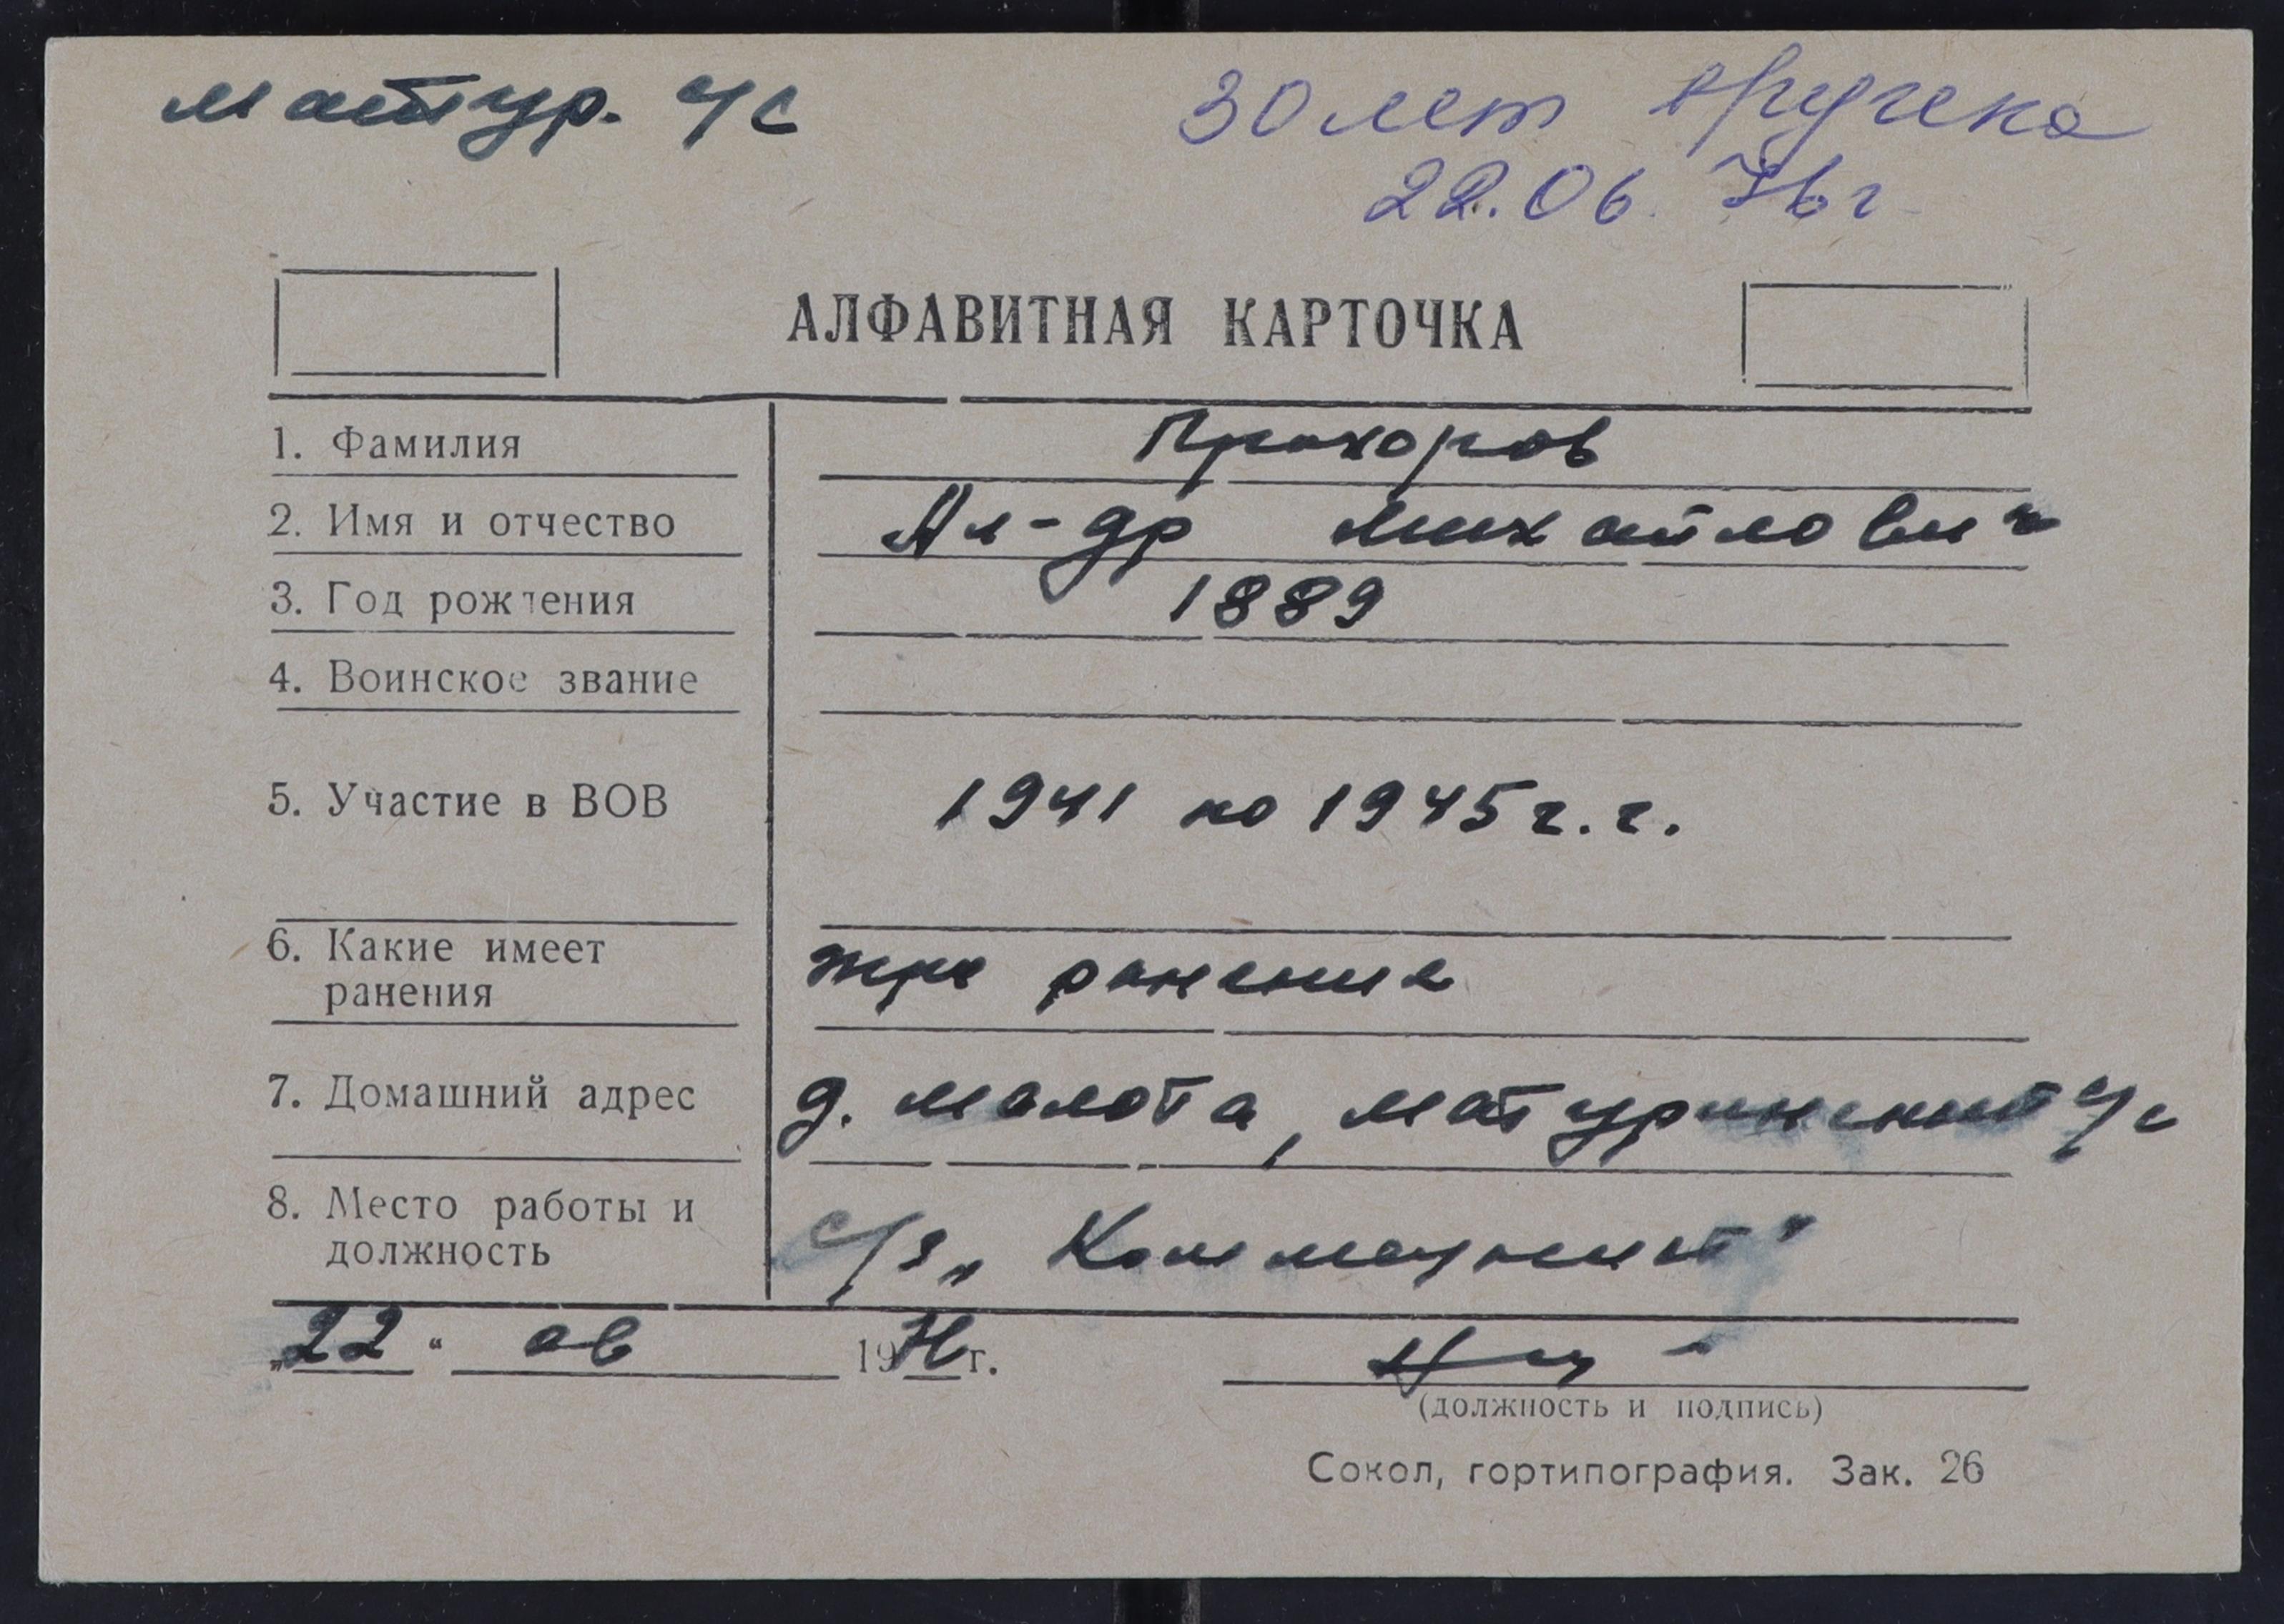 Матур. с/с
30 лет вручена
22.06. 76 г
АЛФАВИТНАЯ КАРТОЧКА
1. Фамилия Прохоров
2. Имя и отчество Ал-др Михайлович
3. Год рождения 1889
4. Воинское звание
5. Участие в ВОВ 1941 по 1945 г.г.
6. Какие имеет
ранения три ранения
7. Домашний адрес д. Молота, Матуринский с/с
8. Место работы и
должность с/з „Коммунист"
„22“ 06 1976 г.
(должность и подпись)
Сокол, гортипография. Зак. 26